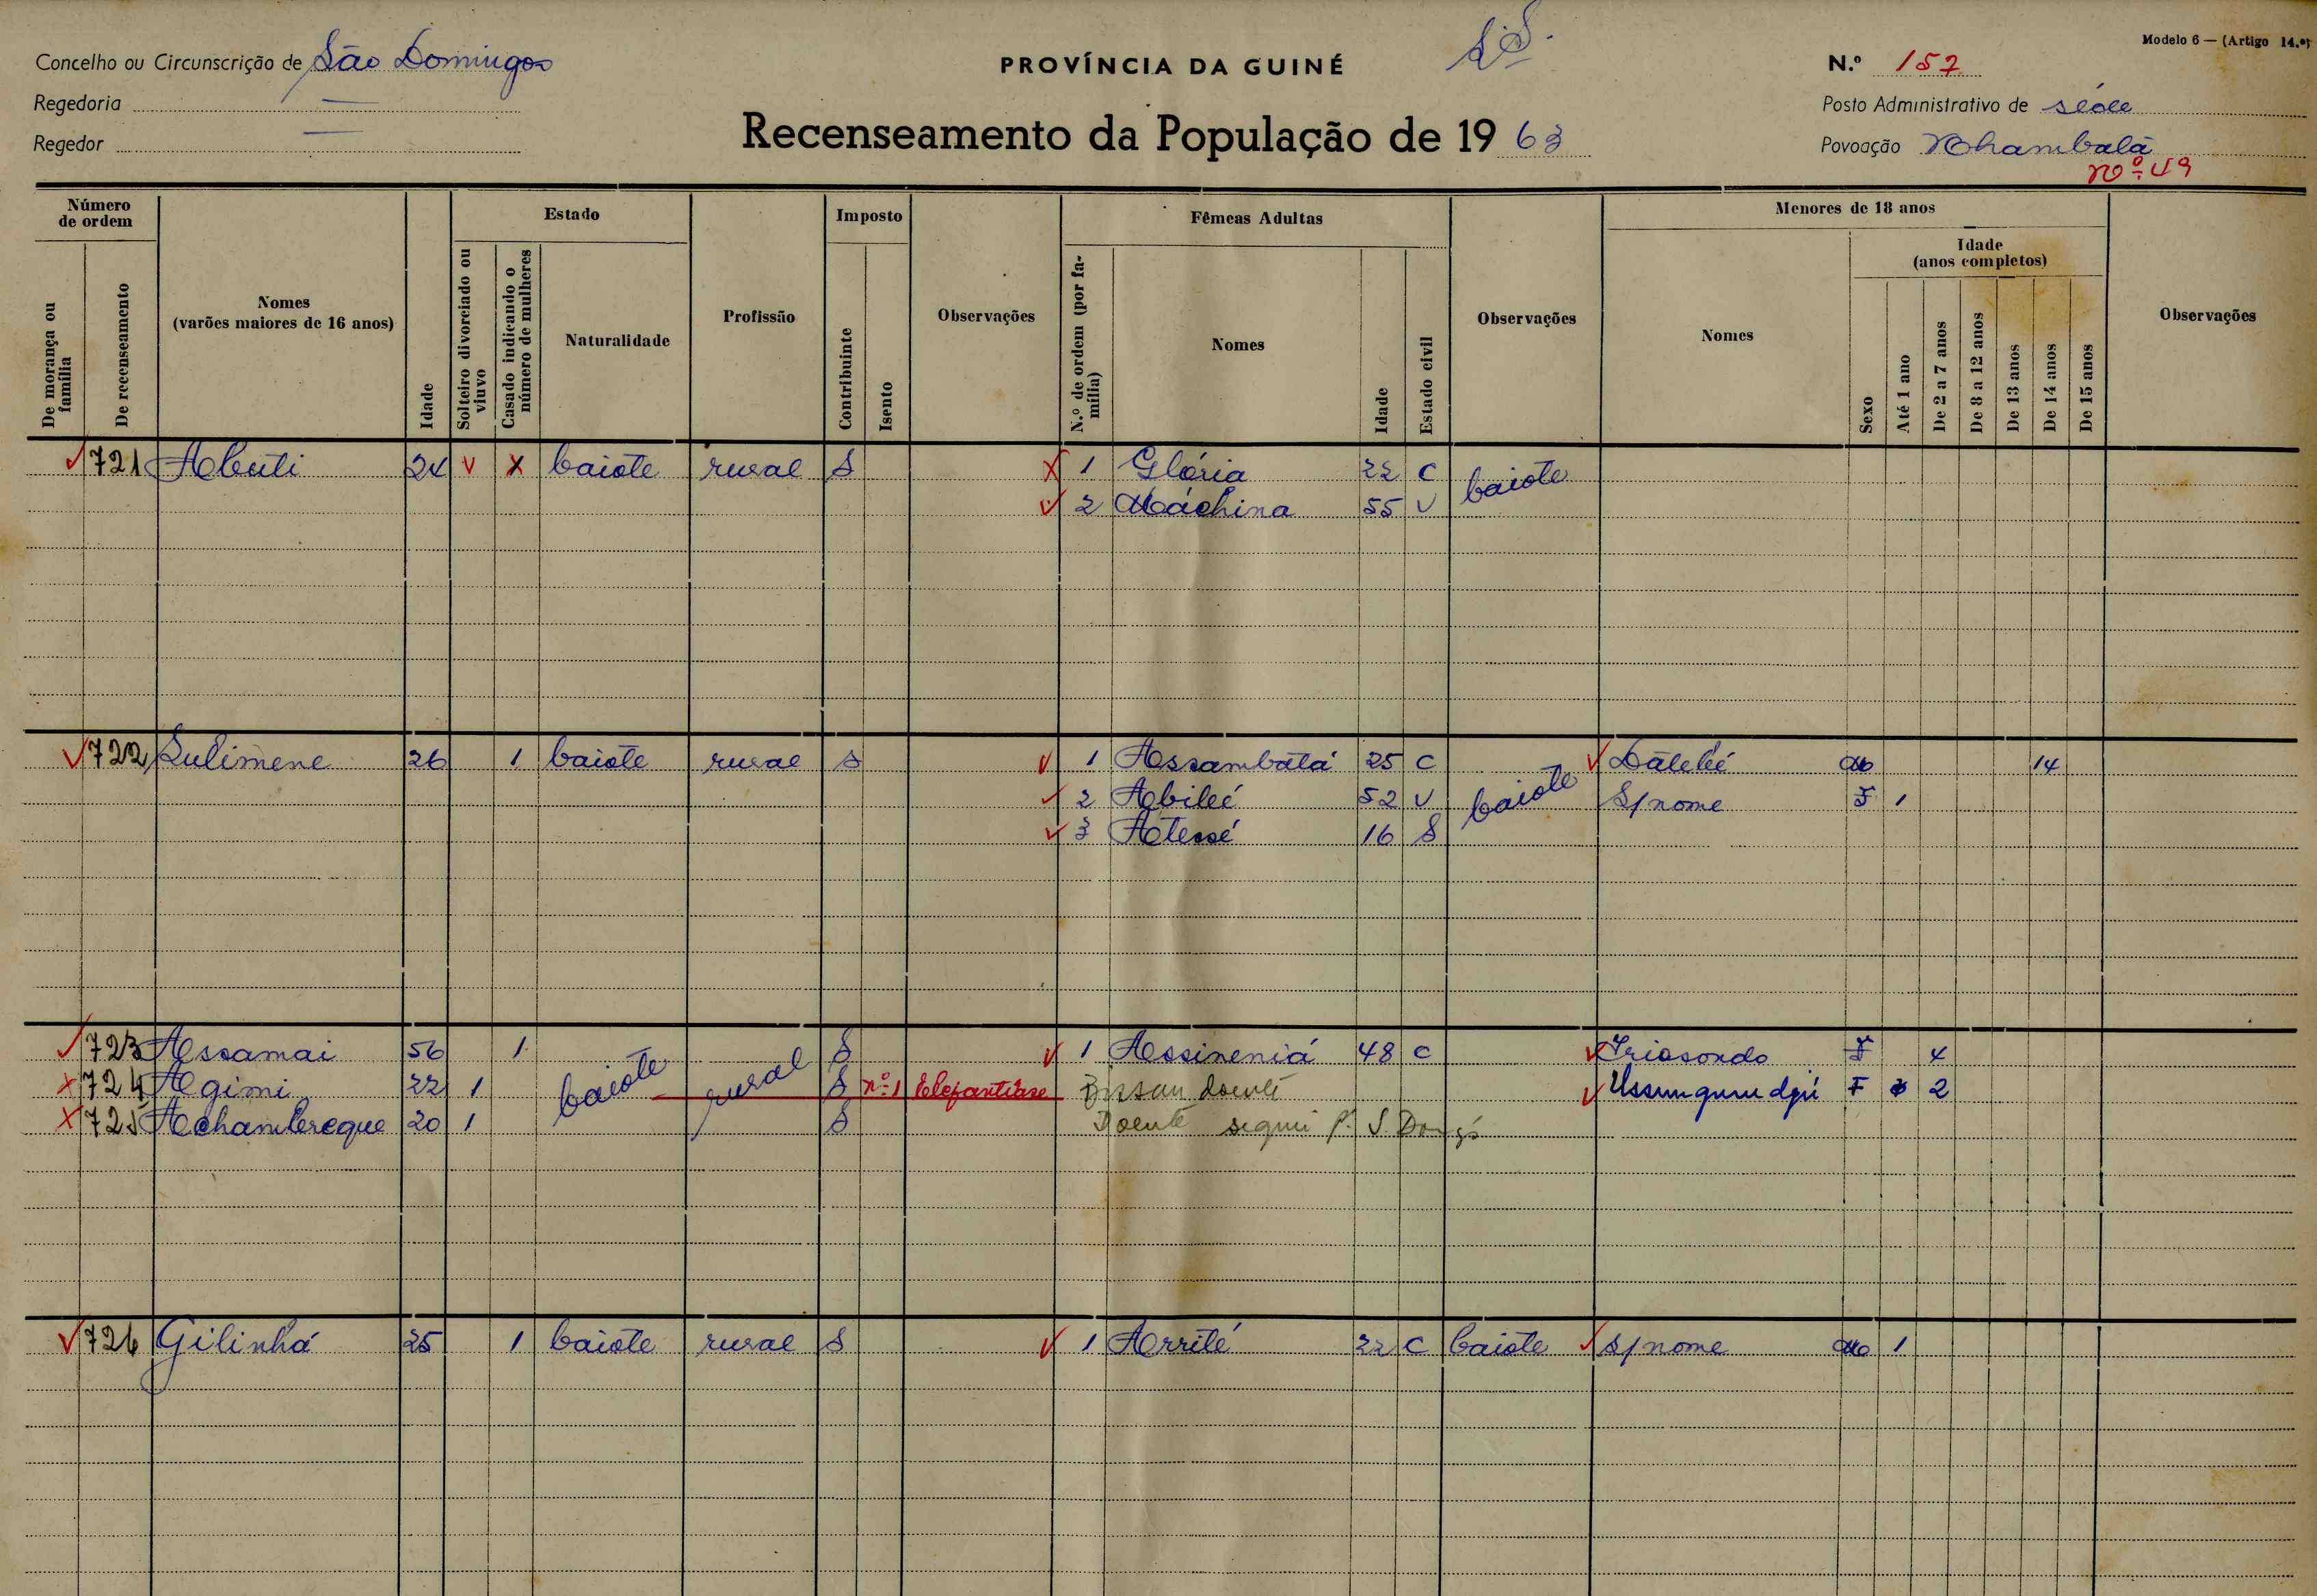 Modelo 6 — (Artigo 14.º)
Concelho ou Circunscrição de São Domingos
PROVÍNCIA DA GUINÉ
N.º 157
Regedoria —
Posto Administrativo de séde
Regedor —
Recenseamento da População de 1963
Povoação Nhambalã
Nº 49
Número de ordem
De morança ou família
De recenseamento
Nomes
(varões maiores de 16 anos)
Idade
Estado
Solteiro divorciado ou viuvo
Casado indicando o número de mulheres
Naturalidade
Profissão
Imposto
Contribuinte
Isento
Observações
Fêmeas Adultas
N.º de ordem (por família)
Nomes
Idade
Estado civil
Observações
Menores de 18 anos
Nomes
Idade
(anos completos)
Sexo
Até 1 ano
De 2 a 7 anos
De 8 a 12 anos
De 13 anos
De 14 anos
De 15 anos
Observações
721 Abuti 24 v x baiote rural S 1 Glória 22 C baiote
2 Máchina 55 V
722 Sulimene 26 1 baiote rural S 1 Assambatá 25 C baiote M 14
2 Abileé 52 V S/nome F 1
3 Atessé 16 S
723 Assamai 56 1 baiote rural S 1 Assineniá 48 C Iriasondo F 4
724 Agimi 22 1 S nº 1 Elefantíase Bissau doente F 2
725 Achambereque 20 1 S Doente seguiu p. S. Dongs
726 Gilinhá 25 1 baiote rural S 1 Arrité 22 C baiote S/nome M 1